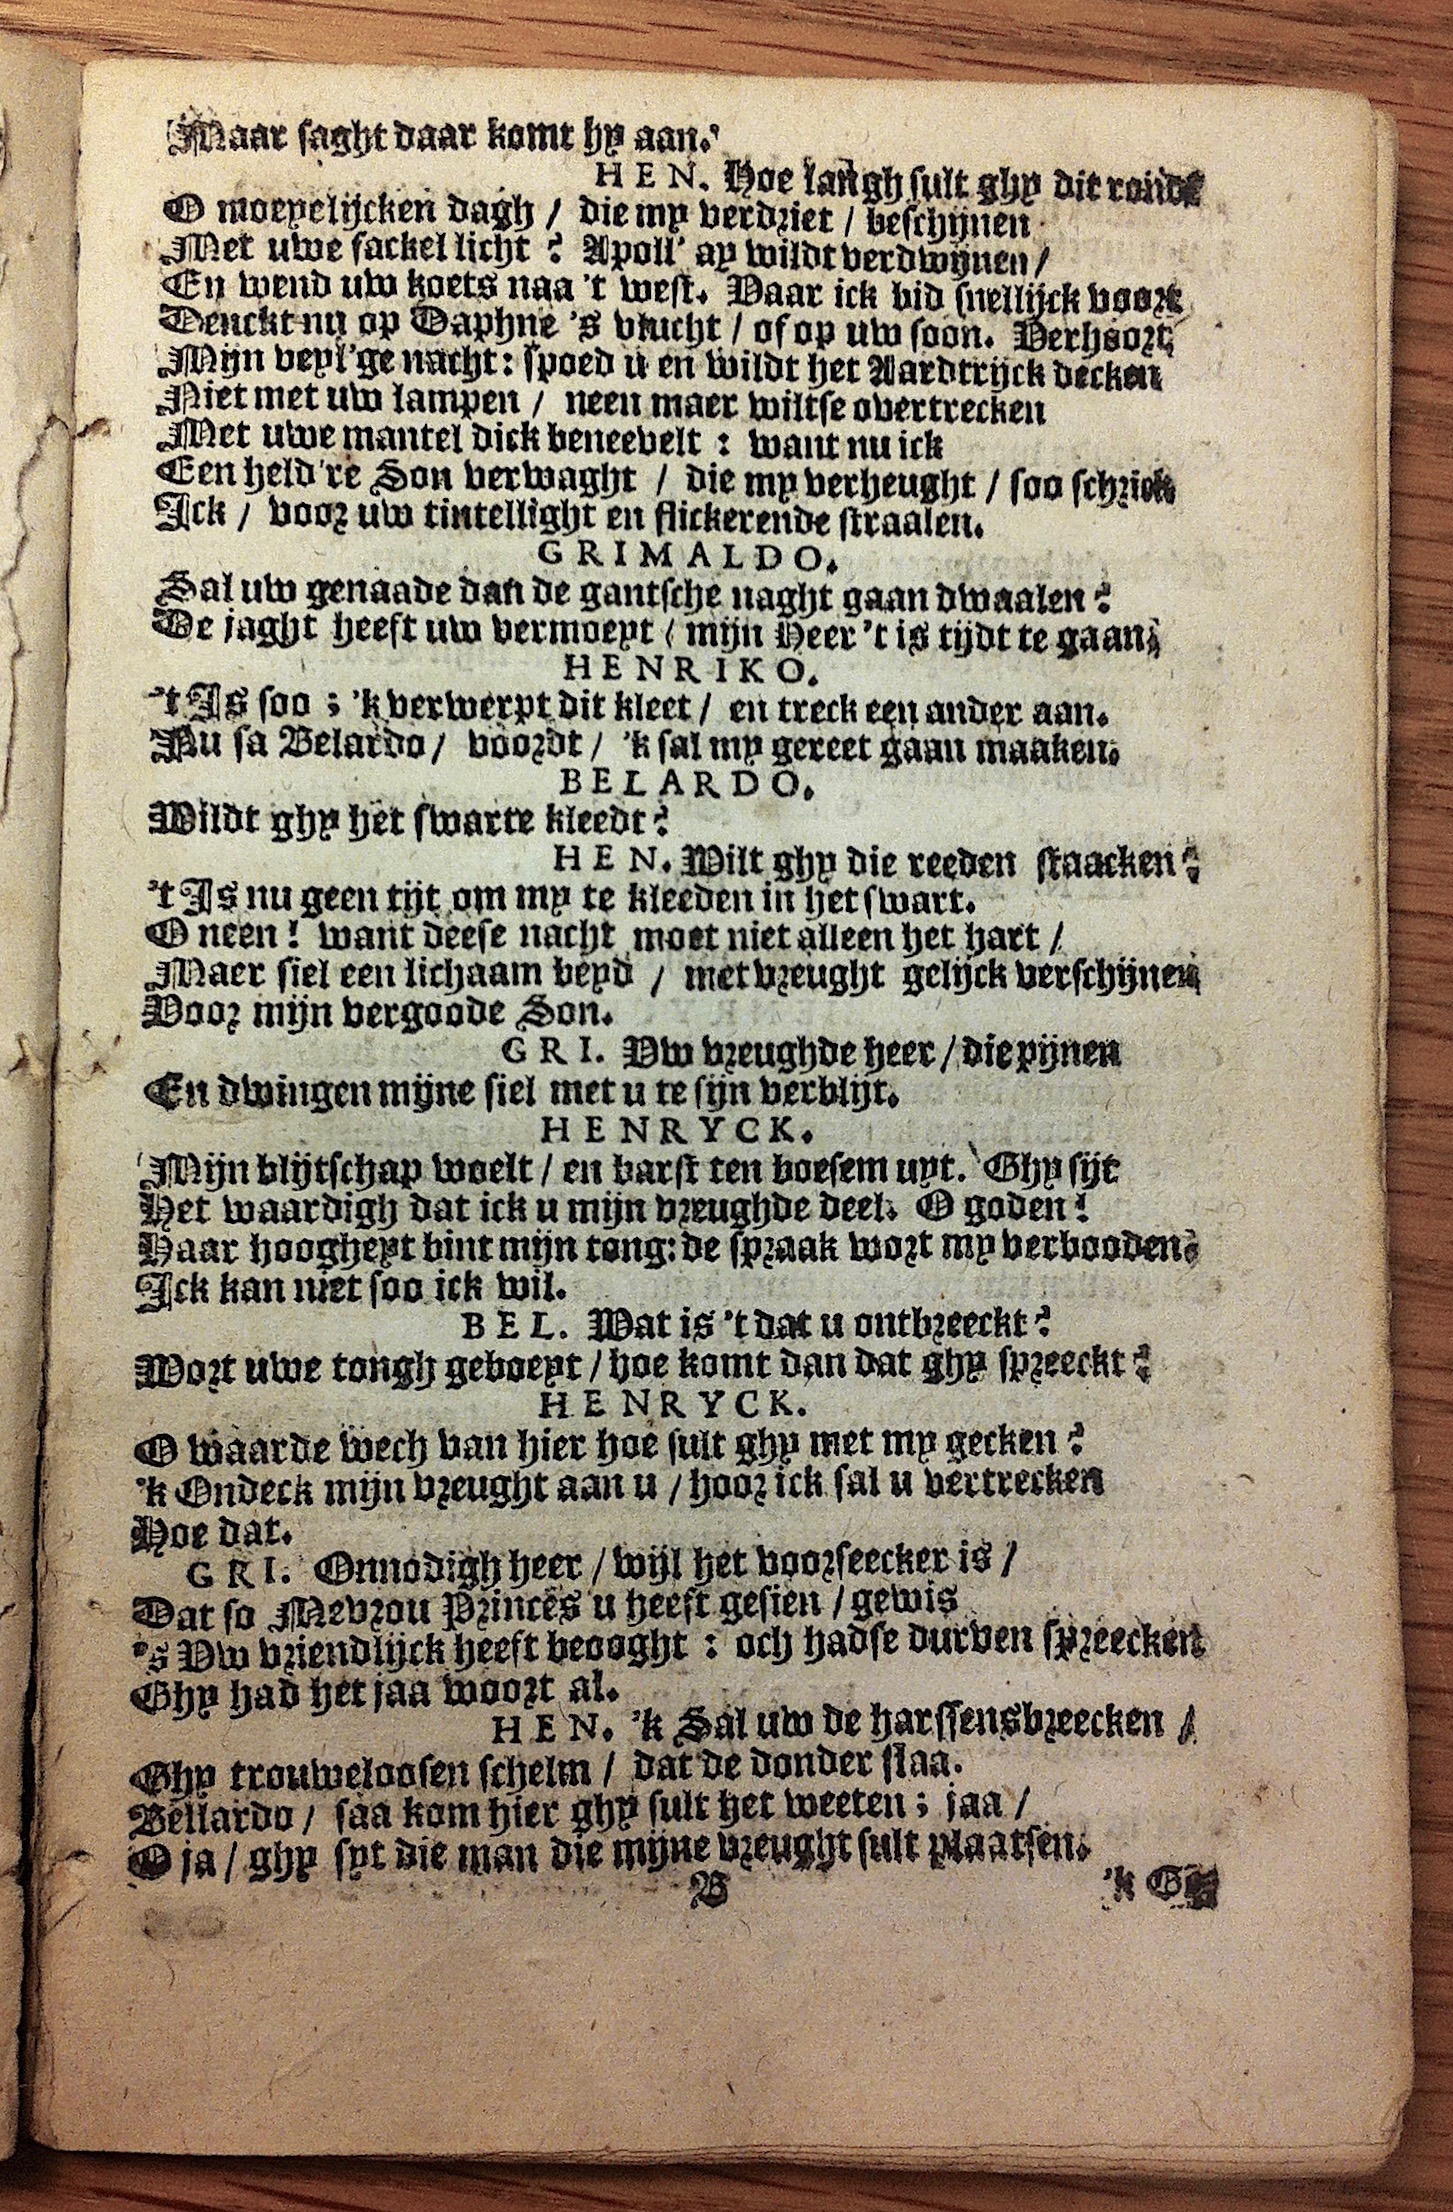 Maar saght daar komt hy aan.
HEN. Hoe langh sult ghy dit ronde
O moeyelijcken dagh / die my verdriet / beschijnen
Met uwe fackel licht? Apoll' ay wildt verdwijnen /
En wend uw koets naa 't west. Daar ick bid snellijck voort
Denckt nu op Daphne 's vlucht / of op uw soon. Verhoort,
Mijn veyl'ge nacht: spoed u en wildt het Aardtrijck decken
Niet met uw lampen / neen maer wiltse overtrecken
Met uwe mantel dick beneevelt: want nu ick
Een held're Son verwaght / die my verheught / soo schrick
Ick / voor uw tintellight en flickerende straalen.
GRIMALDO.
Sal uw genaade dan de gantsche naght gaan dwaalen?
De jaght heeft uw vermoeyt / mijn Heer 't is tijdt te gaan;
HENRIKO.
't Is soo; 'k verwerpt dit kleet / en treck een ander aan.
Nu sa Belardo / voordt / 'k sal my gereet gaan maaken.
BELARDO.
Wildt ghy het swarte kleedt?
HEN. Wilt ghy die reeden staacken?
't Is nu geen tijt om my te kleeden in het swart.
O neen! want deese nacht moet niet alleen het hart /
Maer siel een lichaam beyd / met vreught gelijck verschijnen
Voor mijn vergoode Son.
GRI. Vw vreughde heer / die pijnen
En dwingen mijne siel met u te sijn verblijt.
HENRYCK.
Mijn blijtschap woelt / en barst ten boesem uyt. Ghy sijt
Het waardigh dat ick u mijn vreughde deel. O goden!
Haar hoogheyt bint mijn tong: de spraak wort my verbooden;
Ick kan niet soo ick wil.
BEL. Wat is 't dat u ontbreeckt?
Wort uwe tongh geboeyt / hoe komt dan dat ghy spreeckt?
HENRYCK.
O waarde wech van hier hoe sult ghy met my gecken?
'k Ondeck mijn vreught aan u / hoor ick sal u vertrecken
Hoe dat.
GRI. Onnodigh heer / wijl het voorseecker is /
Dat so Mevrou Princes u heeft gesien / gewis
's Vw vriendlijck heeft beooght: och hadse durven spreecken
Ghy had het jaa woort al.
HEN. 'k Sal uw de harssens breecken /
Ghy trouweloosen schelm / dat de donder slaa.
Bellardo / saa kom hier ghy sult het weeten; jaa /
O ja / ghy syt die man die mijne vreught sult plaatsen.
B 'k